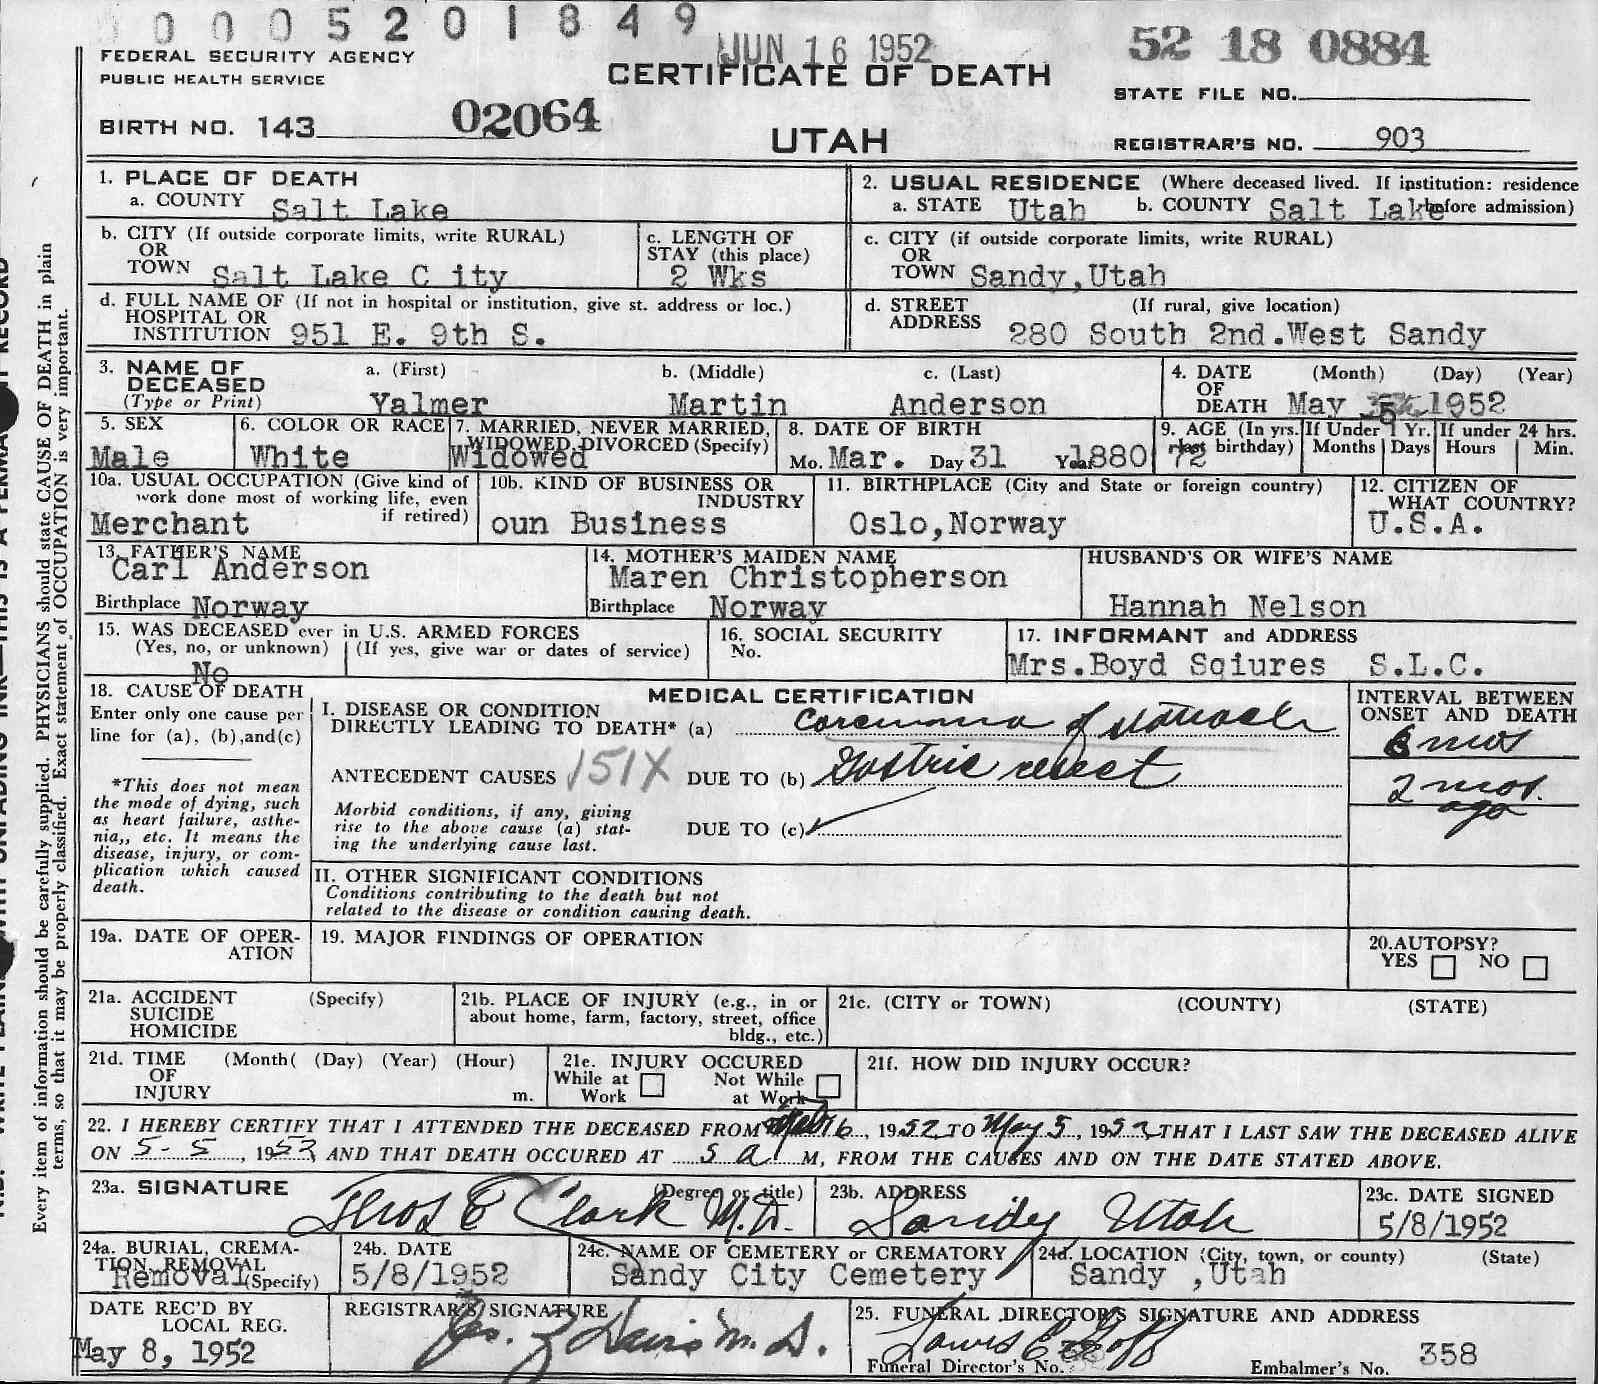 0 0 0 0 5 2 0 1 8 4 9
JUN 16 1952
52 18 0884
FEDERAL SECURITY AGENCY
PUBLIC HEALTH SERVICE
CERTIFICATE OF DEATH
STATE FILE NO.
BIRTH NO. 143 02064
UTAH
REGISTRAR'S NO. 903
1. PLACE OF DEATH
a. COUNTY Salt Lake
2. USUAL RESIDENCE (Where deceased lived. If institution: residence before admission)
a. STATE Utah b. COUNTY Salt Lake
b. CITY (If outside corporate limits, write RURAL)
OR
TOWN Salt Lake C ity
c. LENGTH OF
STAY (this place)
2 Wks
c. CITY (if outside corporate limits, write RURAL)
OR
TOWN Sandy,Utah
d. FULL NAME OF (If not in hospital or institution, give st. address or loc.)
HOSPITAL OR
INSTITUTION 951 E. 9th S.
d. STREET (If rural, give location)
ADDRESS 280 South 2nd.West Sandy
3. NAME OF
DECEASED
(Type or Print)
a. (First) b. (Middle) c. (Last)
Yalmer Martin Anderson
4. DATE (Month) (Day) (Year)
OF
DEATH May 5 1952
5. SEX
Male
6. COLOR OR RACE
White
7. MARRIED, NEVER MARRIED,
WIDOWED, DIVORCED (Specify)
Widowed
8. DATE OF BIRTH
Mo. Mar. Day 31 Year 1880
9. AGE (In yrs. last birthday)
72
If Under 1 Yr.
Months Days
If under 24 hrs.
Hours Min.
10a. USUAL OCCUPATION (Give kind of
work done most of working life, even
if retired)
Merchant
10b. KIND OF BUSINESS OR
INDUSTRY
oun Business
11. BIRTHPLACE (City and State or foreign country)
Oslo,Norway
12. CITIZEN OF
WHAT COUNTRY?
U.S.A.
13. FATHER'S NAME
Carl Anderson
Birthplace Norway
14. MOTHER'S MAIDEN NAME
Maren Christopherson
Birthplace Norway
HUSBAND'S OR WIFE'S NAME
Hannah Nelson
15. WAS DECEASED ever in U.S. ARMED FORCES
(Yes, no, or unknown) (If yes, give war or dates of service)
No
16. SOCIAL SECURITY
No.
17. INFORMANT and ADDRESS
Mrs.Boyd Sqiures S.L.C.
18. CAUSE OF DEATH
Enter only one cause per
line for (a), (b),and(c)
*This does not mean
the mode of dying, such
as heart failure, asthe-
nia,, etc. It means the
disease, injury, or com-
plication which caused
death.
MEDICAL CERTIFICATION
INTERVAL BETWEEN
ONSET AND DEATH
I. DISEASE OR CONDITION
DIRECTLY LEADING TO DEATH* (a) Carcinoma of stomach
6 mos
ANTECEDENT CAUSES 151X DUE TO (b) Gastric resect
2 mos.
ago
Morbid conditions, if any, giving
rise to the above cause (a) stat-
ing the underlying cause last.
DUE TO (c)
II. OTHER SIGNIFICANT CONDITIONS
Conditions contributing to the death but not
related to the disease or condition causing death.
19a. DATE OF OPER-
ATION
19. MAJOR FINDINGS OF OPERATION
20.AUTOPSY?
YES NO
21a. ACCIDENT (Specify)
SUICIDE
HOMICIDE
21b. PLACE OF INJURY (e.g., in or
about home, farm, factory, street, office
bldg., etc.)
21c. (CITY or TOWN) (COUNTY) (STATE)
21d. TIME (Month( (Day) (Year) (Hour)
OF
INJURY m.
21e. INJURY OCCURED
While at Work Not While at Work
21f. HOW DID INJURY OCCUR?
22. I HEREBY CERTIFY THAT I ATTENDED THE DECEASED FROM 6, 1952 TO May 5, 1952 THAT I LAST SAW THE DECEASED ALIVE
ON 5-5, 1952 AND THAT DEATH OCCURED AT 5 a M, FROM THE CAUSES AND ON THE DATE STATED ABOVE.
23a. SIGNATURE (Degree or title)
Thos E Clark M.D.
23b. ADDRESS
Sandy Utah
23c. DATE SIGNED
5/8/1952
24a. BURIAL, CREMA-
TION, REMOVAL
Removal (Specify)
24b. DATE
5/8/1952
24c. NAME OF CEMETERY or CREMATORY
Sandy City Cemetery
24d. LOCATION (City, town, or county) (State)
Sandy ,Utah
DATE REC'D BY
LOCAL REG.
May 8, 1952
REGISTRAR'S SIGNATURE
Davis M.D.
25. FUNERAL DIRECTOR'S SIGNATURE AND ADDRESS
Goff
Funeral Director's No.
Embalmer's No. 358
Every item of information should be carefully supplied. PHYSICIANS should state CAUSE OF DEATH in plain
terms, so that it may be properly classified. Exact statement of OCCUPATION is very important.